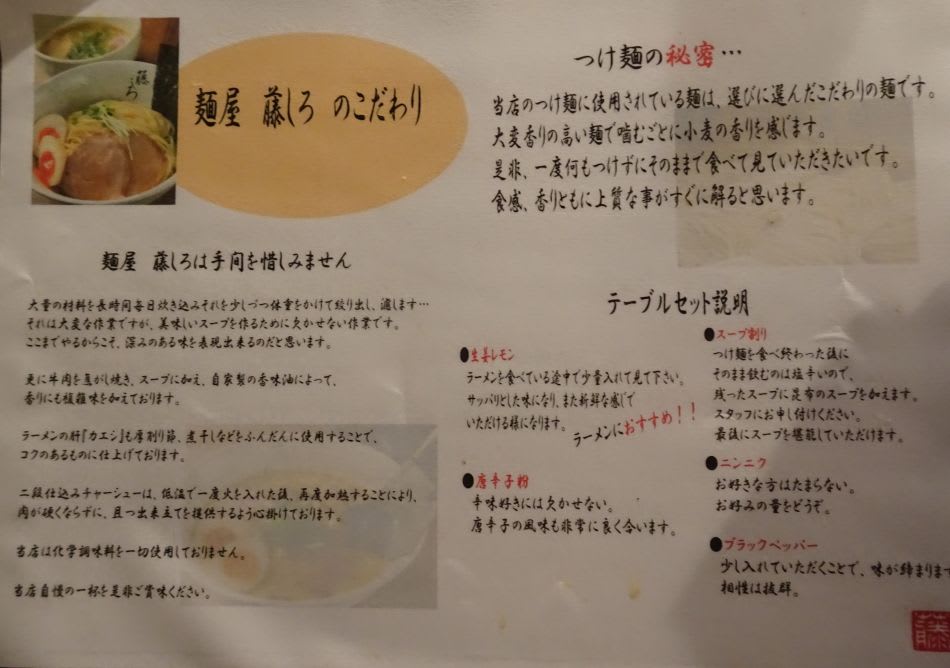 藤しろ
麺屋 藤しろ のこだわり
麺屋 藤しろは手間を惜しみません
大量の材料を長時間毎日炊き込みそれを少しづつ体重をかけて絞り出し、濾します…
それは大変な作業ですが、美味しいスープを作るために欠かせない作業です。
ここまでやるからこそ、深みのある味を表現出来るのだと思います。
更に牛肉を直がし焼き、スープに加え、自家製の香味油によって、
香りにも複雑味を加えております。
ラーメンの肝『カエシ』も厚削り節、煮干しなどをふんだんに使用することで、
コクのあるものに仕上げております。
二段仕込みチャーシューは、低温で一度火を入れた後、再度加熱することにより、
肉が硬くならずに、且つ出来立てを提供するよう心掛けております。
当店は化学調味料を一切使用しておりません。
当店自慢の一杯を是非ご賞味ください。
つけ麺の秘密…
当店のつけ麺に使用されている麺は、選びに選んだこだわりの麺です。
大変香りの高い麺で噛むごとに小麦の香りを感じます。
是非、一度何もつけずにそのままで食べて見ていただきたいです。
食感、香りともに上質な事がすぐに解ると思います。
テーブルセット説明
●生姜レモン
ラーメンを食べている途中で少量入れて見て下さい。
サッパリとした味になり、また新鮮な感じで
いただける様になります。
ラーメンにおすすめ!!
●唐辛子粉
辛味好きには欠かせない。
唐辛子の風味も非常に良く合います。
●スープ割り
つけ麺を食べ終わった後に
そのまま飲むのは塩辛いので、
残ったスープに昆布のスープを加えます。
スタッフにお申し付けください。
最後にスープを堪能していただけます。
●ニンニク
お好きな方はたまらない。
お好みの量をどうぞ。
●ブラックペッパー
少し入れていただくことで、味が締まります
相性は抜群。
藤